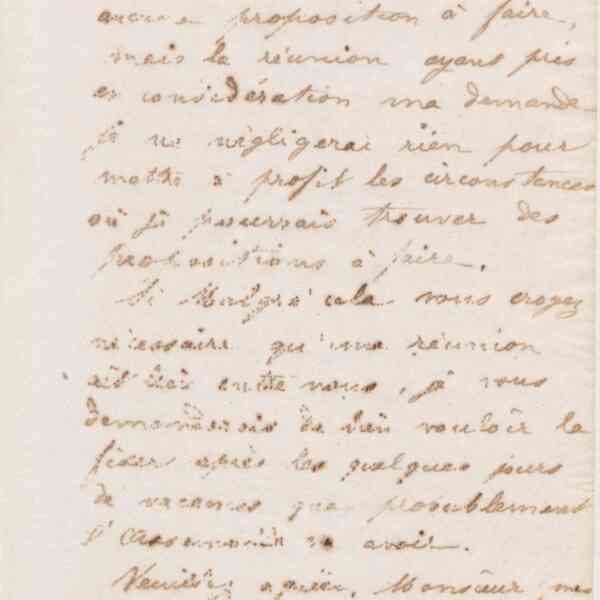 aucune proposition à faire,
mais la réunion ayant pris
en considération ma demande
je ne négligerai rien pour
mettre à profit les circonstances
où je pourrais trouver des
propositions à faire.
Si malgré cela vous croyez
nécessaire qu'une réunion
ait lieu entre nous, je vous
demanderais de bien vouloir la
fixer après les quelques jours
de vacances que probablement
l'Assemblée va avoir.
Veuillez agréer, Monsieur, mes